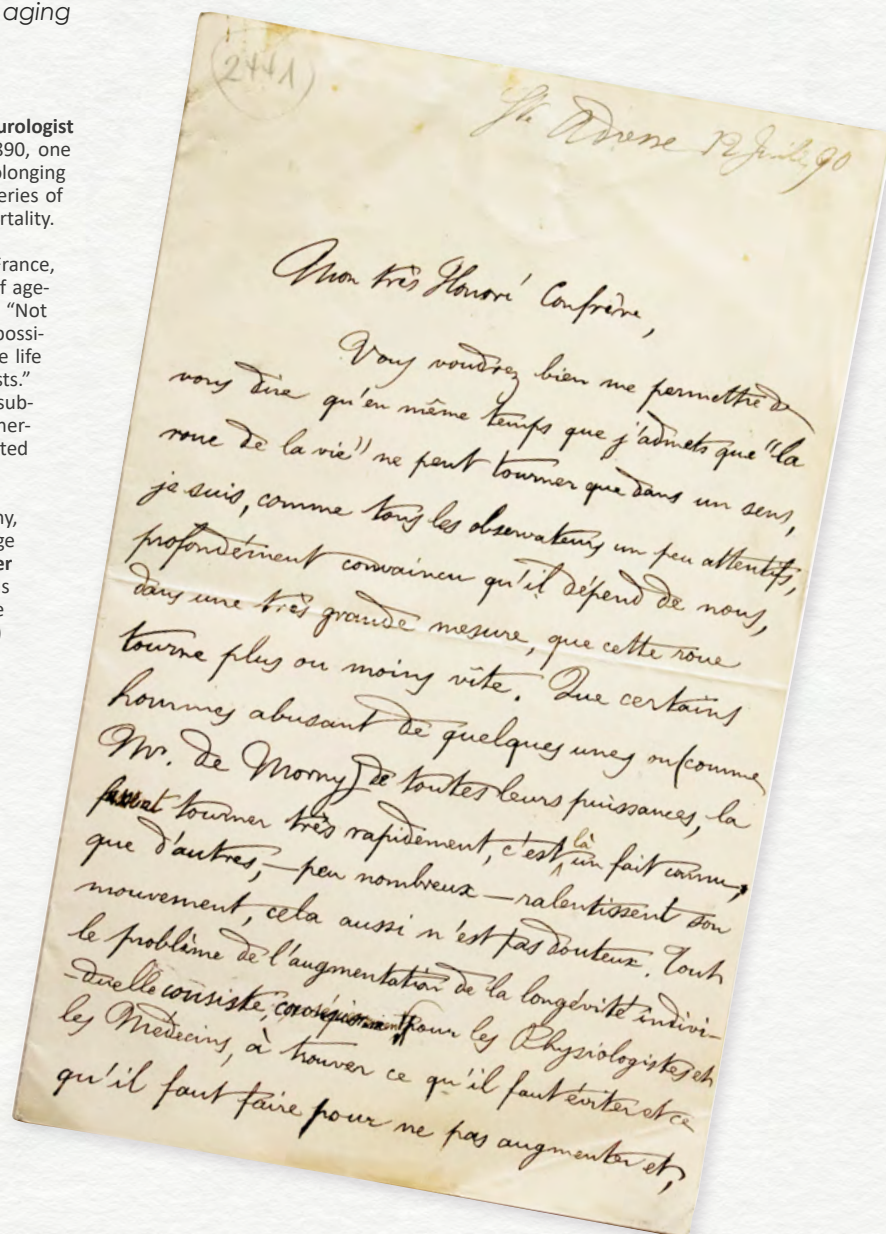 aging
urologist
890, one
olonging
eries of
rtality.
France,
f age-
“Not
possi-
e life
sts.”
sub-
her-
ted
ny,
ge
er
s
e
)
2441
Ste Adresse 12 90
Mon très Honoré Confrère,
Vous voudrez bien me permettre de
vous dire qu'en même temps que j'admets que "la
roue de la vie" ne peut tourner que dans un sens,
je suis, comme tous les observateurs un peu attentifs,
profondément convaincu qu'il dépend de nous,
dans une très grande mesure, que cette roue
tourne plus ou moins vite. Que certains
hommes abusant de quelques unes ou (comme
Mr. de Morny) de toutes leurs puissances, la
tourner très rapidement, c'est là un fait connu,
que d'autres, — peu nombreux — ralentissent son
mouvement, cela aussi n'est pas douteux. Tout
le problème de l'augmentation de la longévité indivi-
-duelle consiste, pour les Physiologistes et
les Médecins, à trouver ce qu'il faut éviter et ce
qu'il faut faire pour ne pas augmenter et,